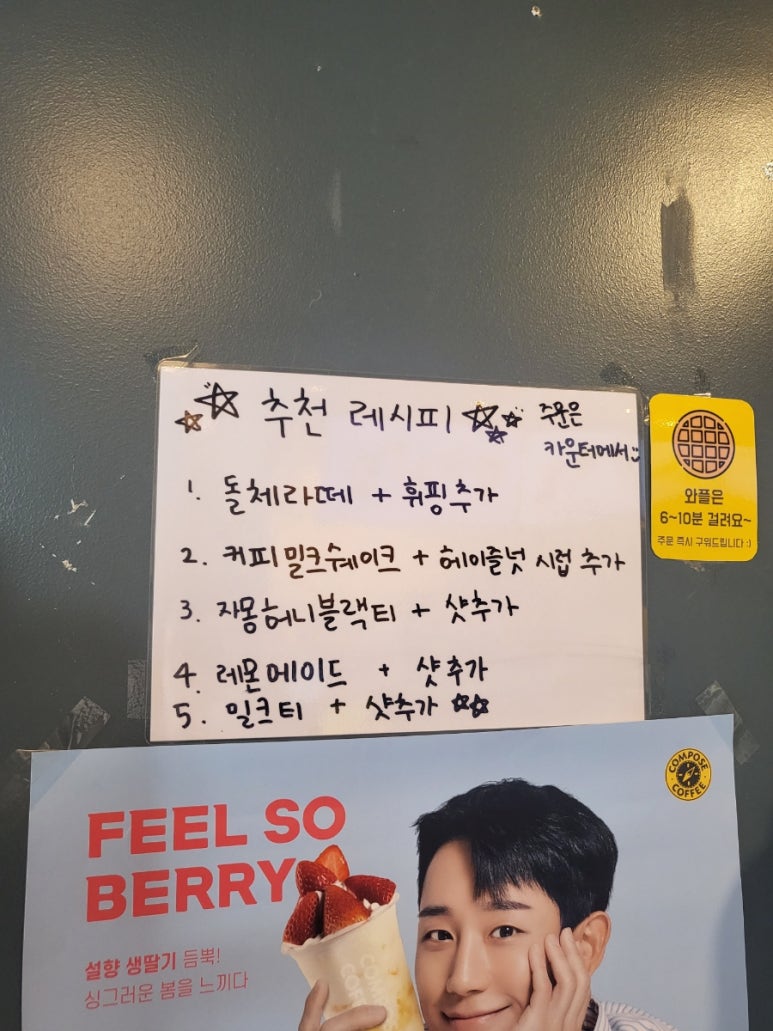 추천 레시피
주문은
카운터에서
1. 돌체라떼 + 휘핑추가
2. 커피밀크쉐이크 + 헤이즐넛 시럽 추가
3. 자몽허니블랙티 + 샷추가
4. 레몬에이드 + 샷추가
5. 밀크티 + 샷추가
와플은
6~10분 걸려요~
주문 즉시 구워드립니다 :)
COMPOSE
COFFEE
FEEL SO
BERRY
설향 생딸기 듬뿍!
싱그러운 봄을 느끼다